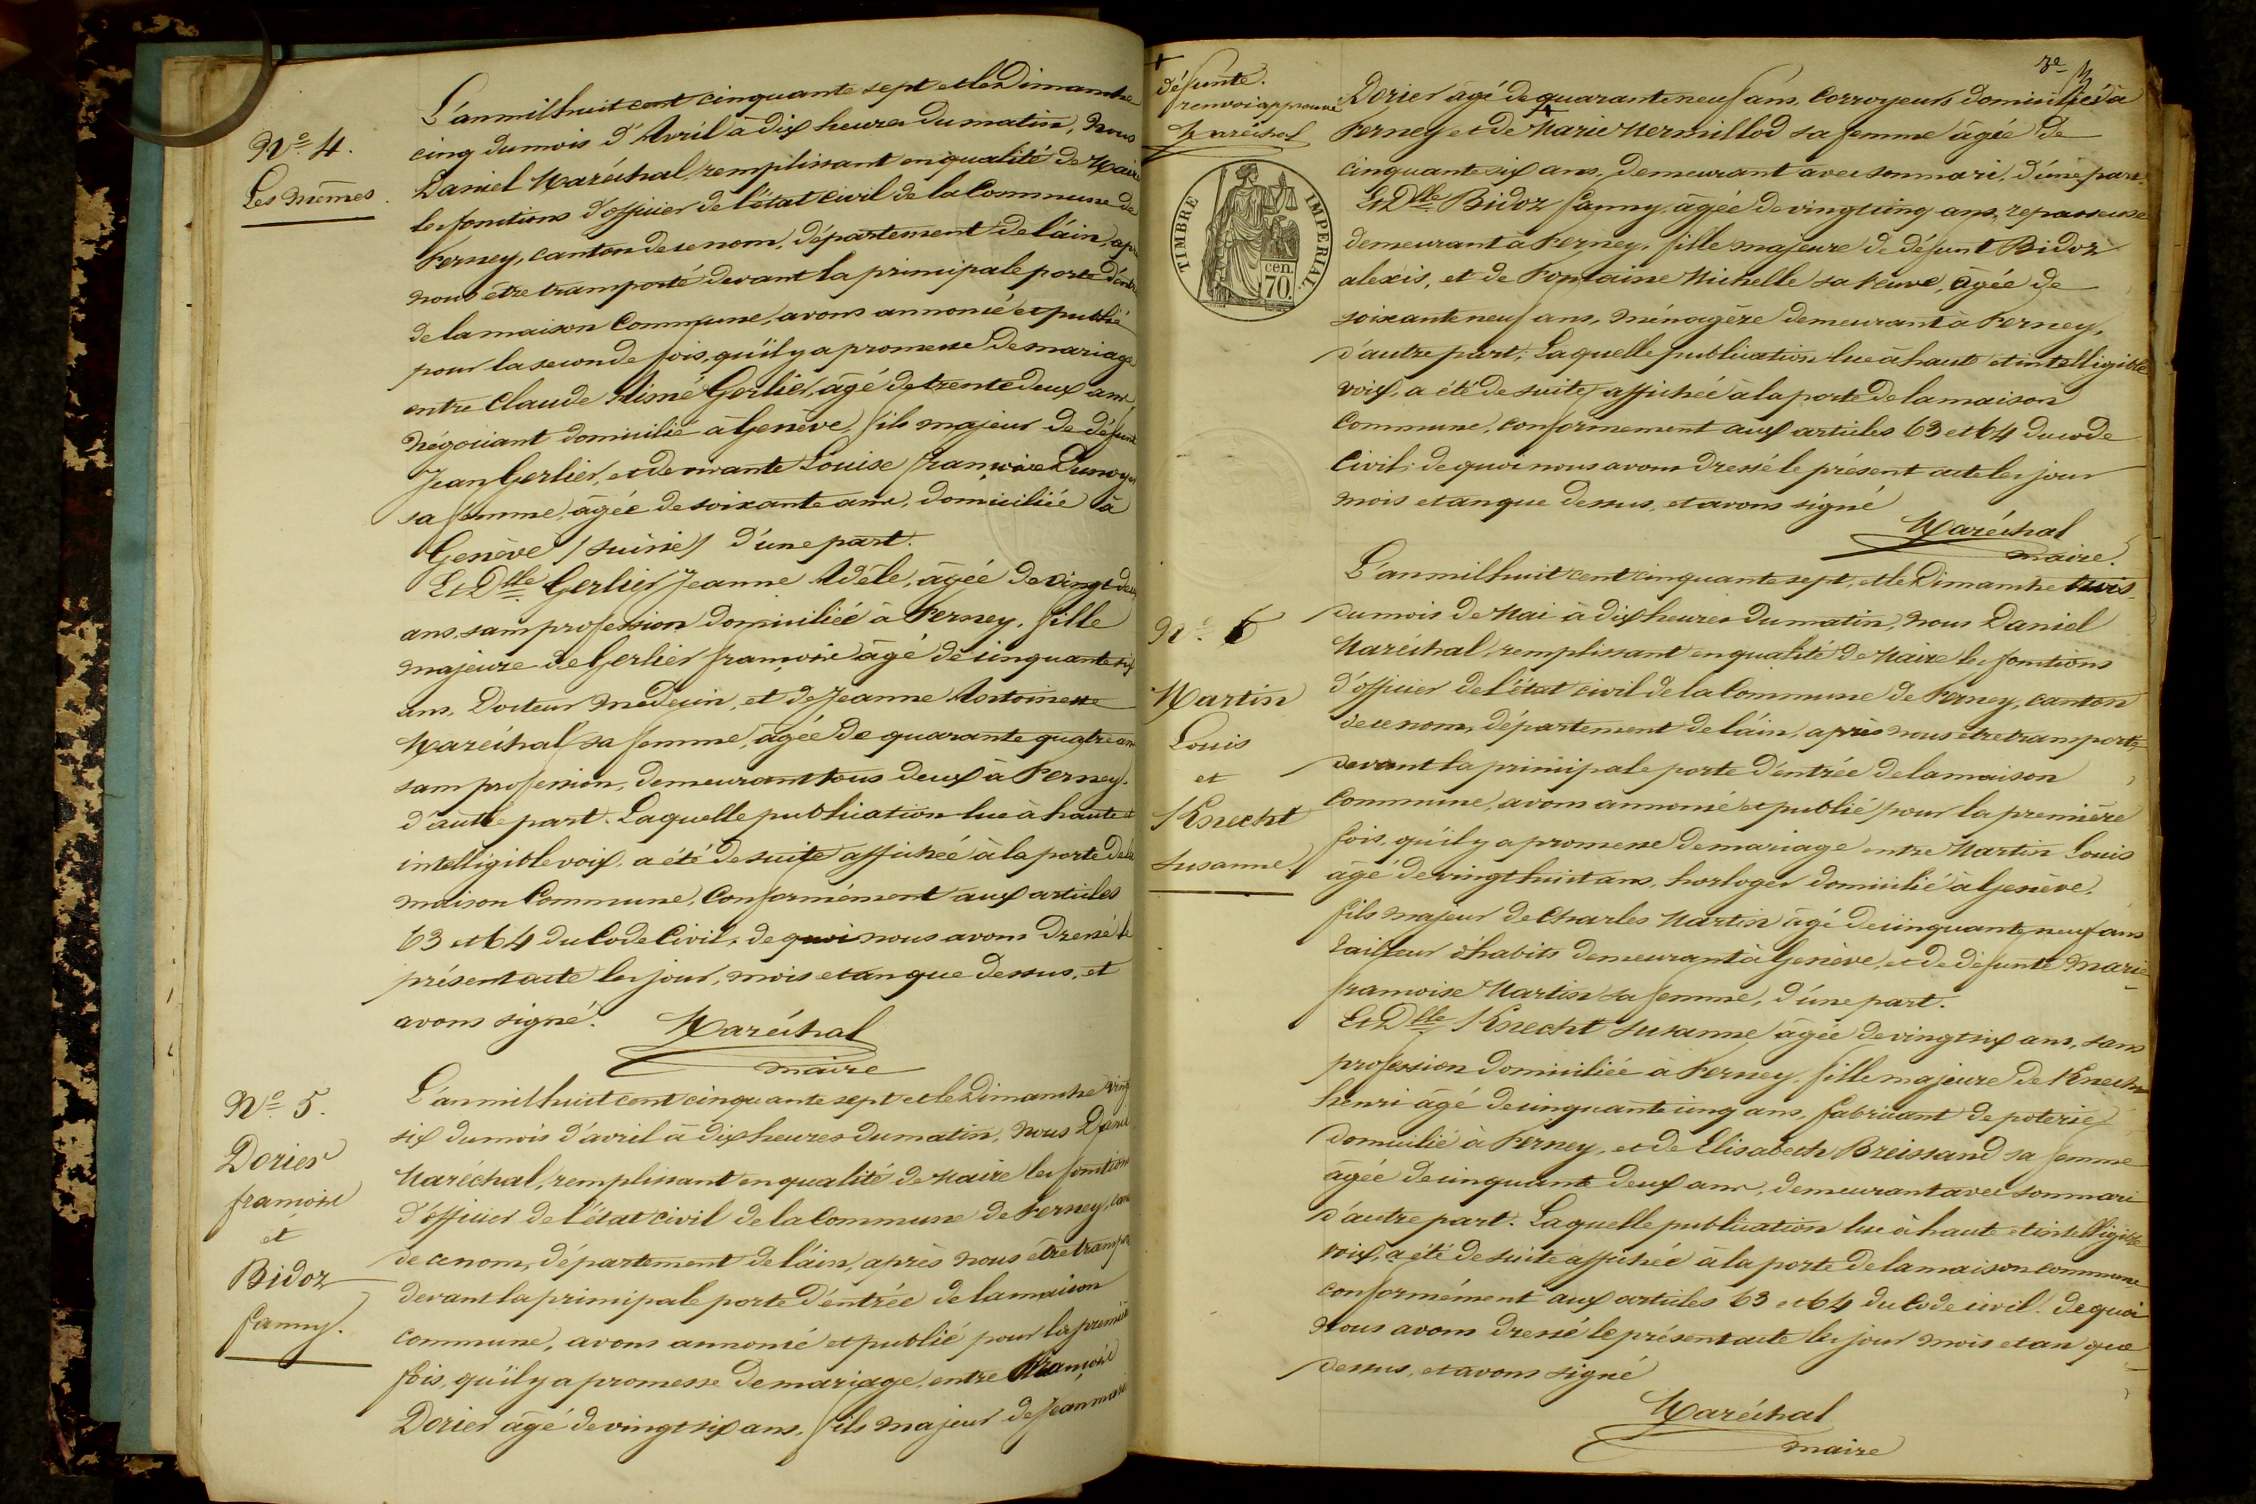 Nº 4.
Les mêmes.
L'an mil huit cent cinquante sept et le Dimanche
cinq du mois d'Avril à dix heures du matin, Nous
Daniel Maréchal, remplissant en qualité de Maire
les fonctions d'officier de l'état civil de la Commune de
Ferney, canton de ce nom, département de l'ain, apr
nous être transporté devant la principale porte d'entr
de la maison Commune, avons annoncé et publié
pour la seconde fois, qu'il y a promesse de mariage
entre Claude Aimé Gerlier, âgé de trente deux ans,
négociant domicilié à Genève, fils majeur de défunt
Jean Gerlier, et de vivante Louise françoise Dunoyer
sa femme, âgée de soixante ans, domiciliée à
Genève (suisse) d'une part.
Et Dlle Gerlier Jeanne Adèle, âgée de vingt deux
ans, sans profession domiciliée à Ferney, fille
majeure de Gerlier françois âgé de cinquante six
ans, Docteur médecin, et de Jeanne Antoinette
Maréchal sa femme, âgée de quarante quatre ans
sans profession, demeurant tous deux à Ferney.
d'autre part. Laquelle publication lue à haute et
intelligible voix, a été de suite affichée à la porte de la
maison Commune, Conformément aux articles
63 et 64 du Code Civil, de quoi nous avons dressé le
présent acte les jour, mois et an que dessus, et
avons signé.
Maréchal
maire
Nº 5.
Dorier
françois
et
Bidoz
fanny.
L'an mil huit cent cinquante sept et le Dimanche vingt
six du mois d'avril à dix heures du matin, Nous Daniel
Maréchal, remplissant en qualité de Maire les fonctions
d'officier de l'état civil de la Commune de Ferney, can
de ce nom, département de l'ain, après nous être transpor
devant la principale porte d'entrée de la maison
commune, avons annoncé et publié pour la première
fois, qu'il y a promesse de mariage, entre François
Dorier âgé de vingt six ans, fils majeur de Jean marie
3e
+
défunte.
renvoi approuvé
Maréchal
TIMBRE IMPERIAL.
cen.
70.
Dorier âgé de quarante neuf ans, Corroyeur domiciliés à
Ferney et de + Marie Mermillod sa femme âgée de
cinquante six ans, demeurant avec son mari, d'une part.
Et Dlle Bidoz fanny, âgée de vingt cinq ans, repasseuse
demeurant à Ferney, fille majeure de défunt Bidoz
alexis, et de Fontaine Michelle sa veuve, âgée de
soixante neuf ans, ménagère demeurant à Ferney,
d'autre part, Laquelle publication lue à haute et intelligible
voix, a été de suite affichée à la porte de la maison
Commune, conformement aux articles 63 et 64 du code
Civil; de quoi nous avons dressé le présent acte les jour
mois et an que dessus, et avons signé
Maréchal
maire.
Nº 6
Martin
Louis
et
Knecht
Susanne.
L'an mil huit cent cinquante sept, et le Dimanche trois
du mois de Mai à dix heures du matin, nous Daniel
Maréchal, remplissant en qualité de Maire les fonctions
d'officier de l'état civil de la Commune de Ferney, canton
de ce nom, département de l'ain, après nous être transporté
devant la principale porte d'entrée de la maison
Commune, avons annoncé et publié pour la première
fois, qu'il y a promesse de mariage entre Martin Louis
âgé de vingt huit ans, horloger domicilié à Genève,
fils majeur de Charles Martin âgé de cinquante neuf ans
tailleur d'habits demeurant à Genève, et de défunte Marie
françoise Martin sa femme, d'une part.
Et Dlle Knecht Susanne âgée de vingt six ans, sans
profession domiciliée à Ferney, fille majeure de Knecht
henri âgé de cinquante cinq ans, fabricant de poterie
domicilié à Ferney, et de Elisabeth Breissand sa femme
âgée de cinquante deux ans, demeurant avec son mari
d'autre part. Laquelle publication lue à haute et intelligible
voix, a été de suite affichée à la porte de la maison commune
conformément aux articles 63 et 64 du Code civil. de quoi
Nous avons dressé le présent acte les jour mois et an que
dessus, et avons signé
Maréchal
maire